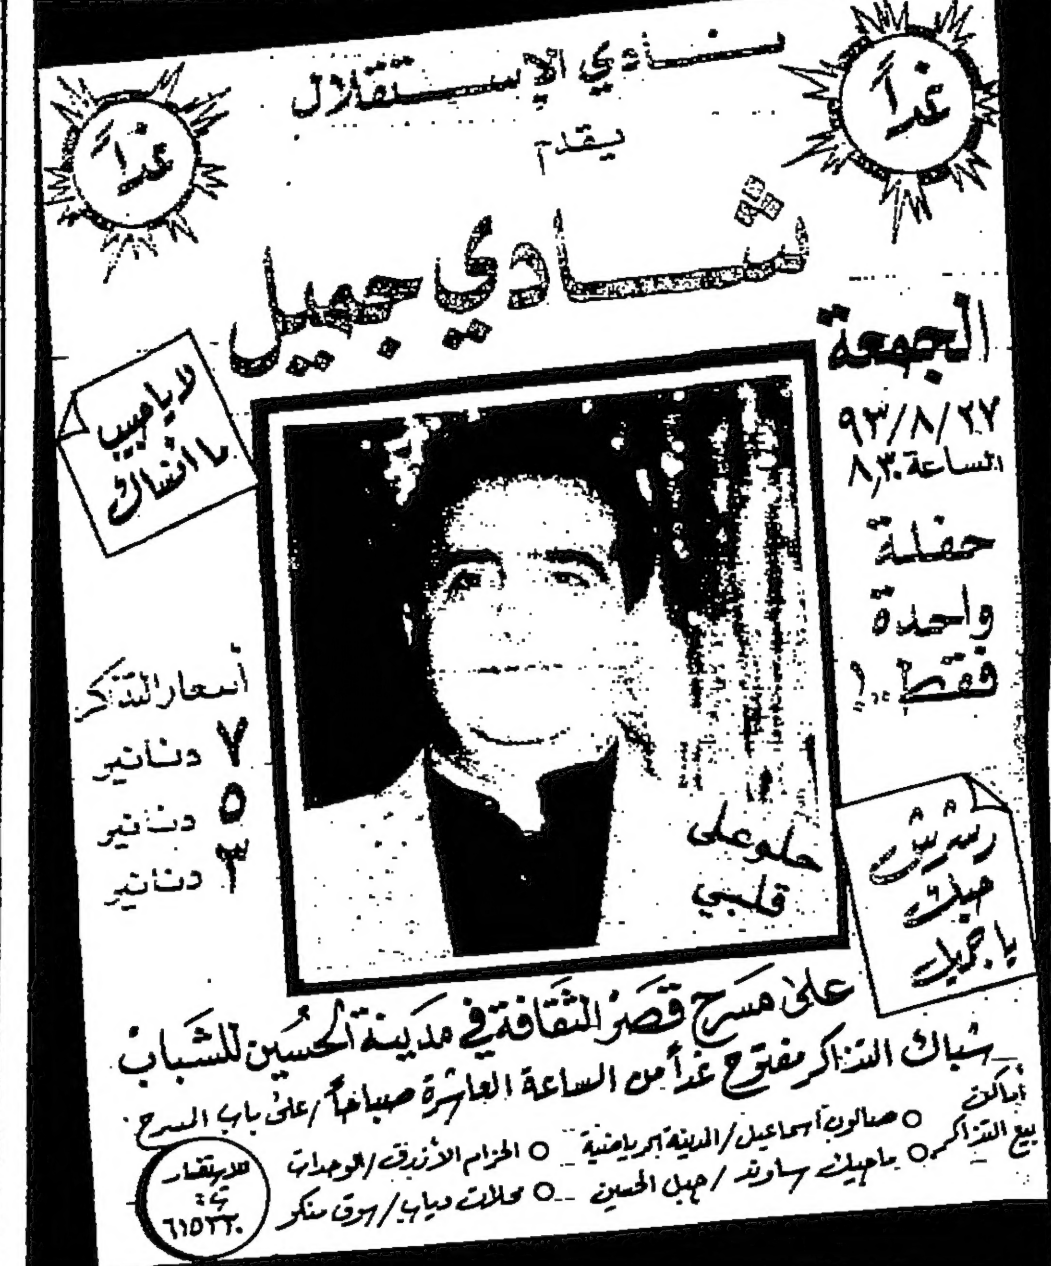 نادي الإستقلال
يقدم
غداً
غداً
شادي جميل
الجمعة
٩٣/٨/٢٧
الساعة ٨,٣٠
حفلة
واحدة
فقط
لا يا حبيب
ما أنساك
أسعار التذاكر
٧ دنانير
٥ دنانير
٣ دنانير
حلو على
قلبي
حبك
يا جميل
على مسرح قصر الثقافة في مدينة الحسين للشباب
شباك التذاكر مفتوح غداً من الساعة العاشرة صباحاً / على باب المسرح
أماكن
بيع التذاكر
صالون اسماعيل / المدينة الرياضية
الحزام الأزرق / الوحدات
ساوند / جبل الحسين
محلات دياب / سوق منكو
للاستفسار
ت :